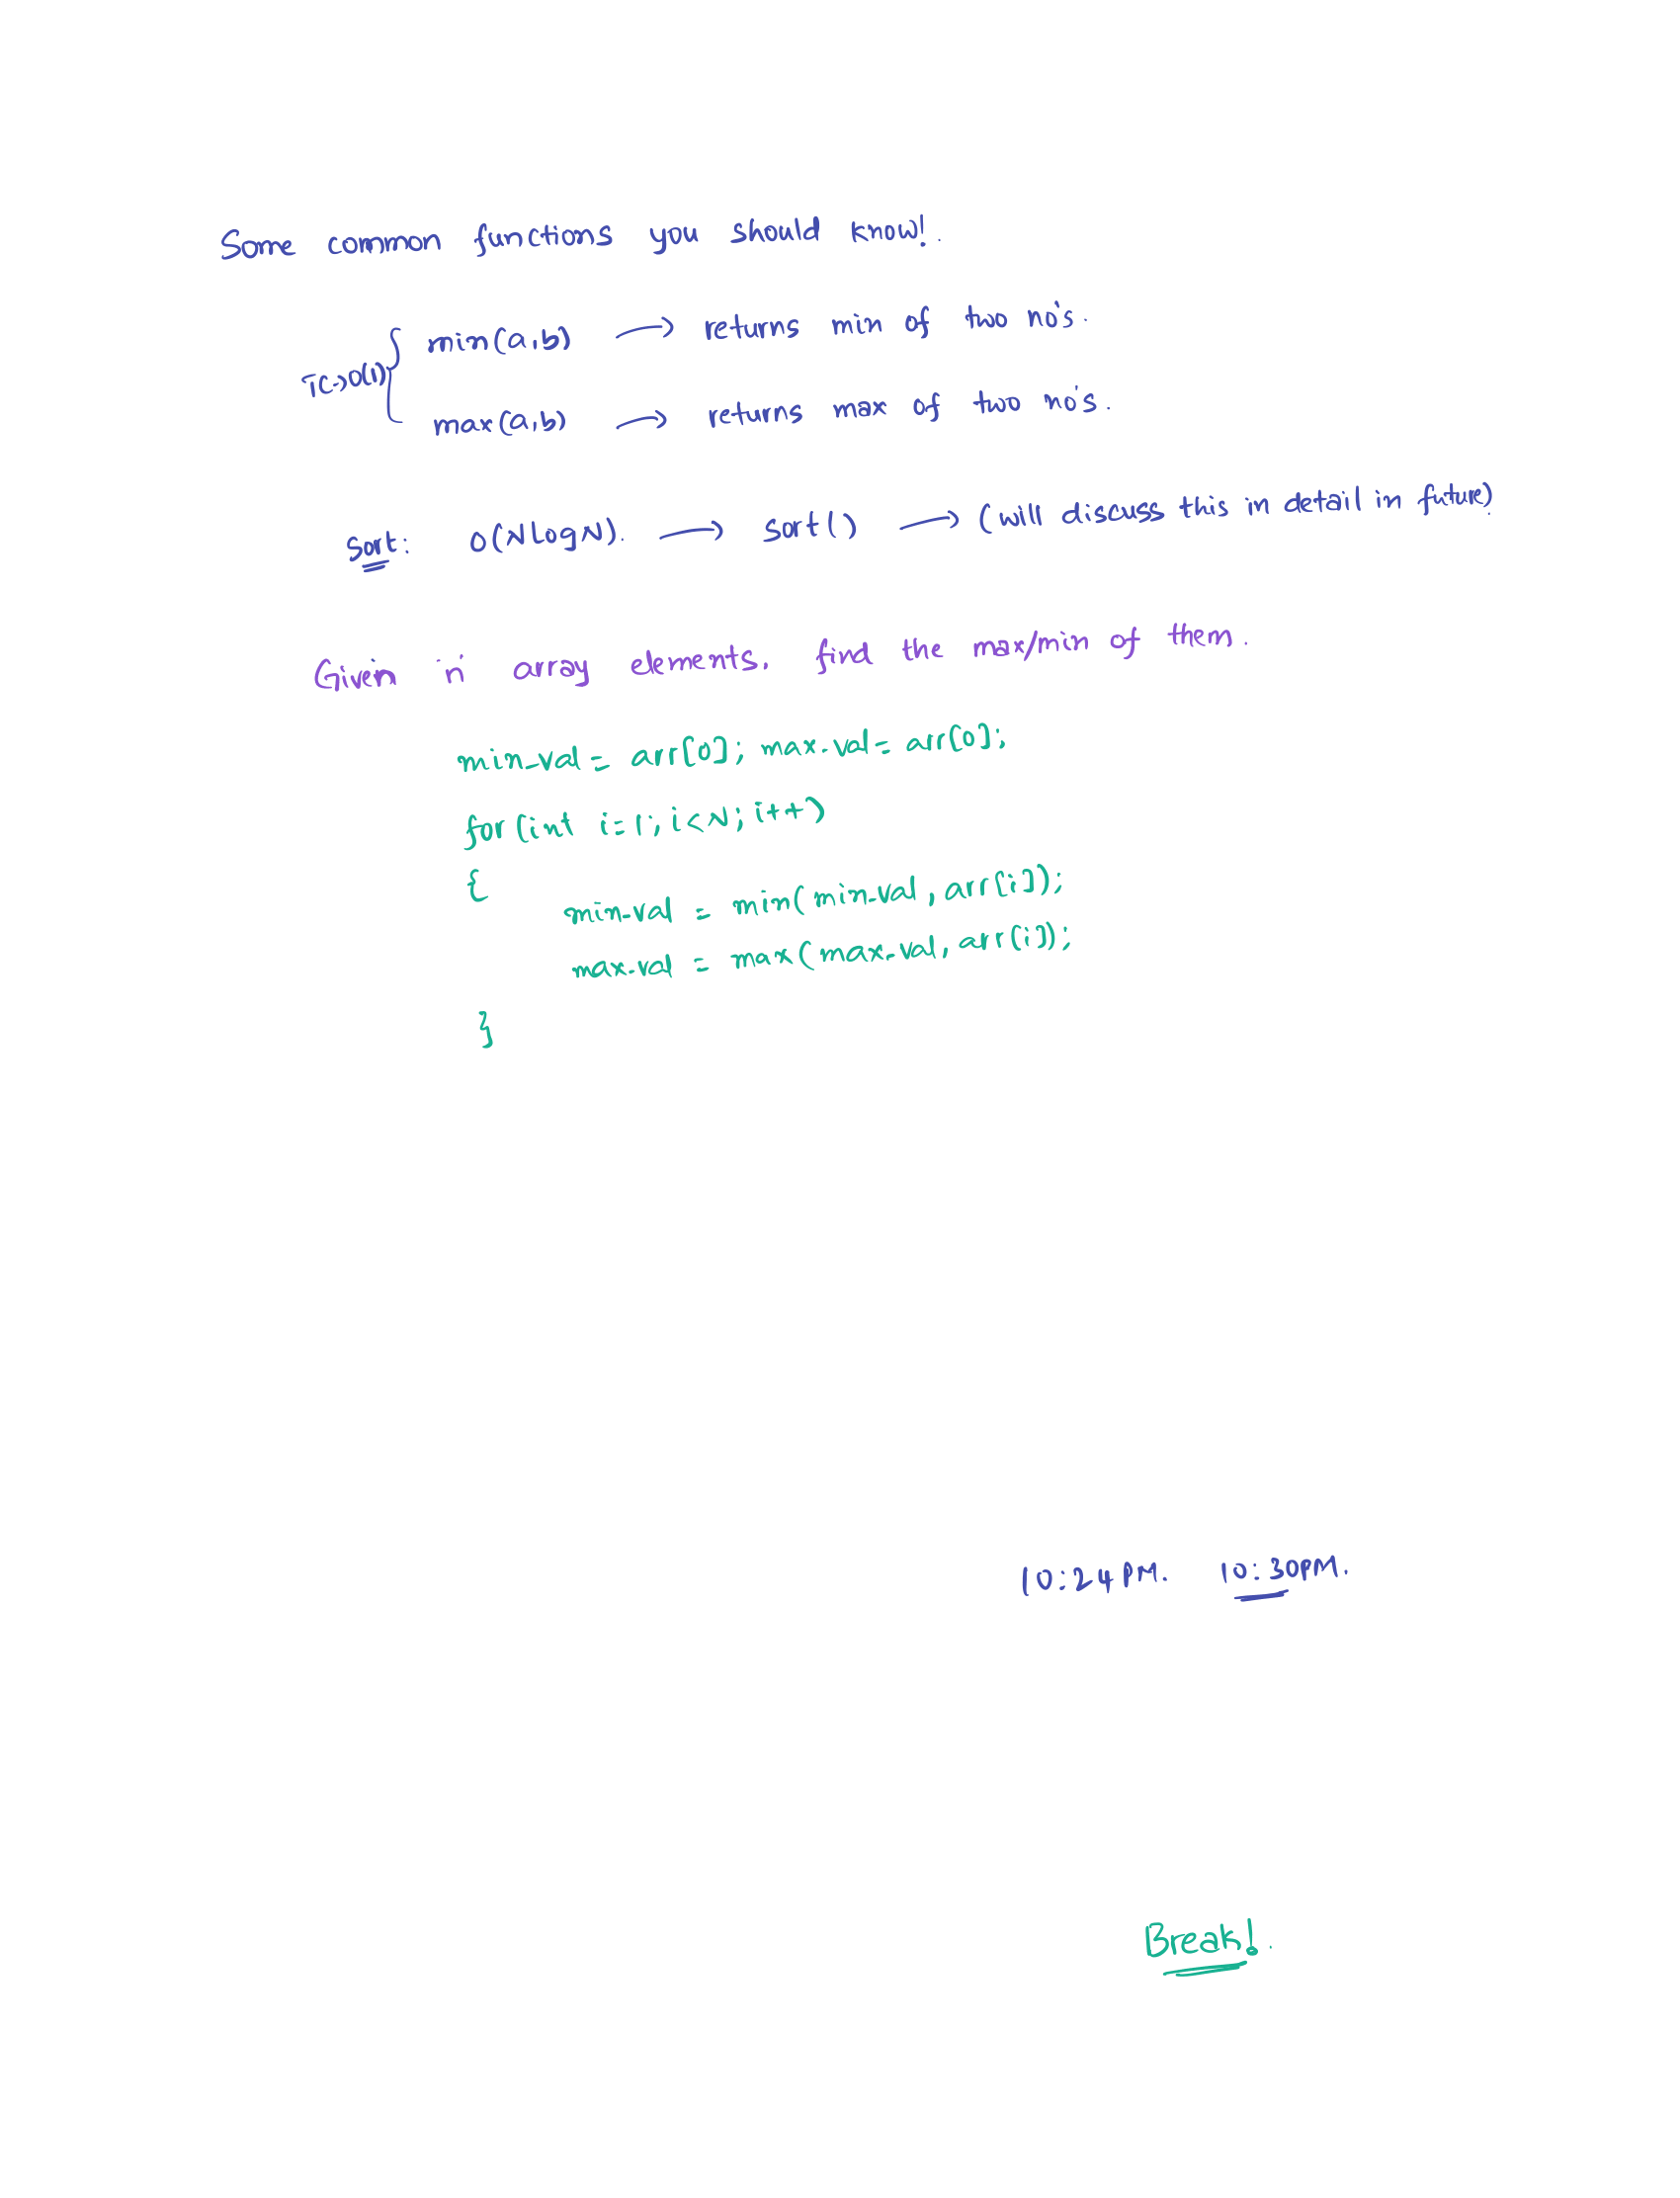 Some common functions you should know!.
TC→O(1) { min(a,b) → returns min of two no's.
max(a,b) → returns max of two no's.
Sort: O(NLogN). → sort() → (will discuss this in detail in future).
Given 'n' array elements. find the max/min of them.
min_val = arr[0]; max_val = arr[0];
for(int i=1; i<N; i++)
{
min_val = min(min_val, arr[i]);
max_val = max(max_val, arr[i]);
}
10:24 PM. 10:30PM.
Break!.